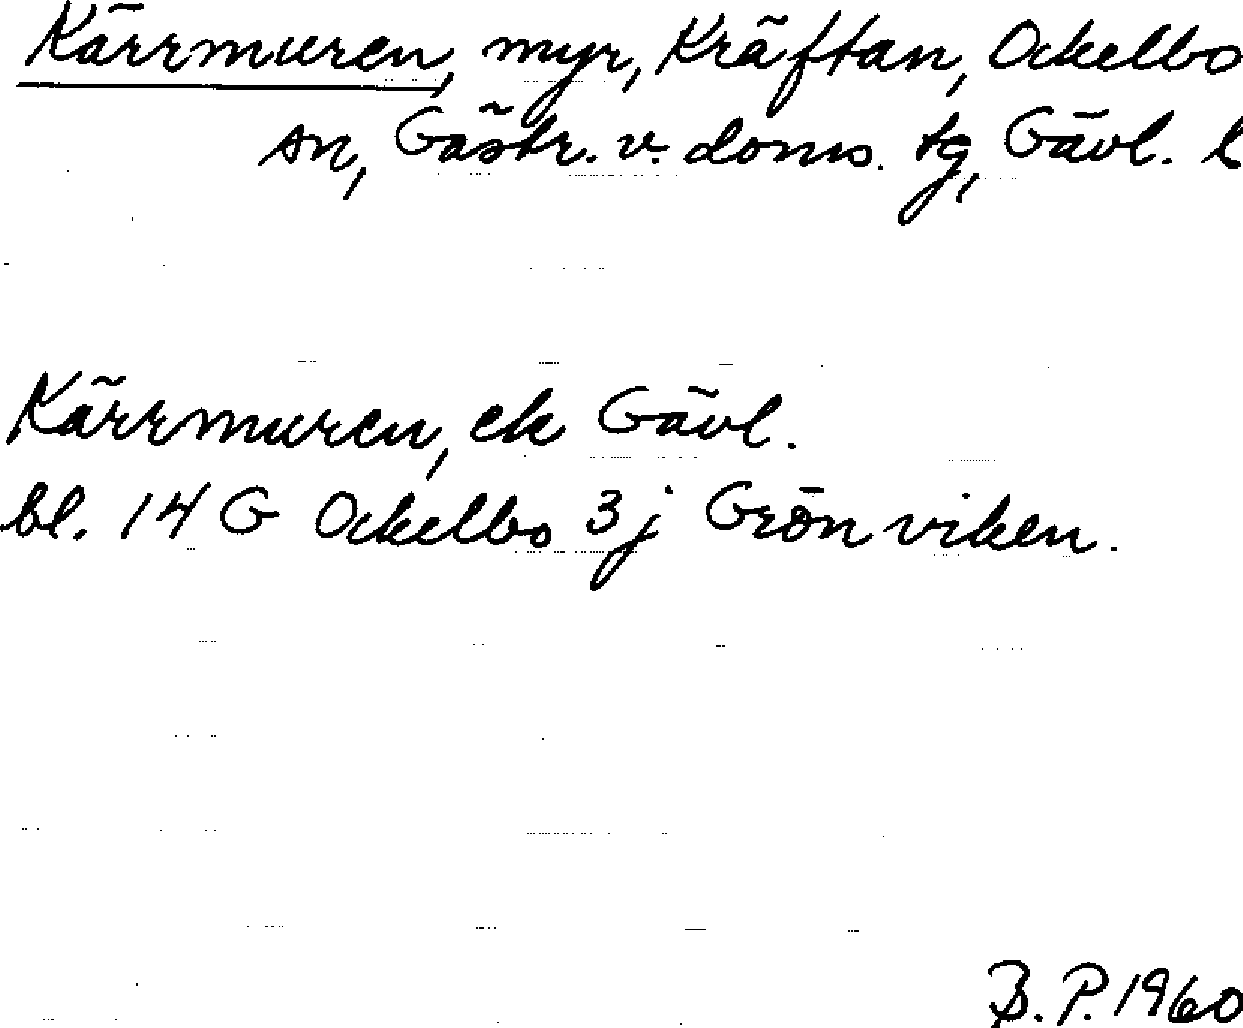 Kärrmuren, myr, Kräftan, Ockelbo
sn, Gästr. v. doms. tg, Gävl. l
Kärrmuren, ek Gävl.
bl. 14 G Ockelbo 3 j Grönviken.
B. P. 1960